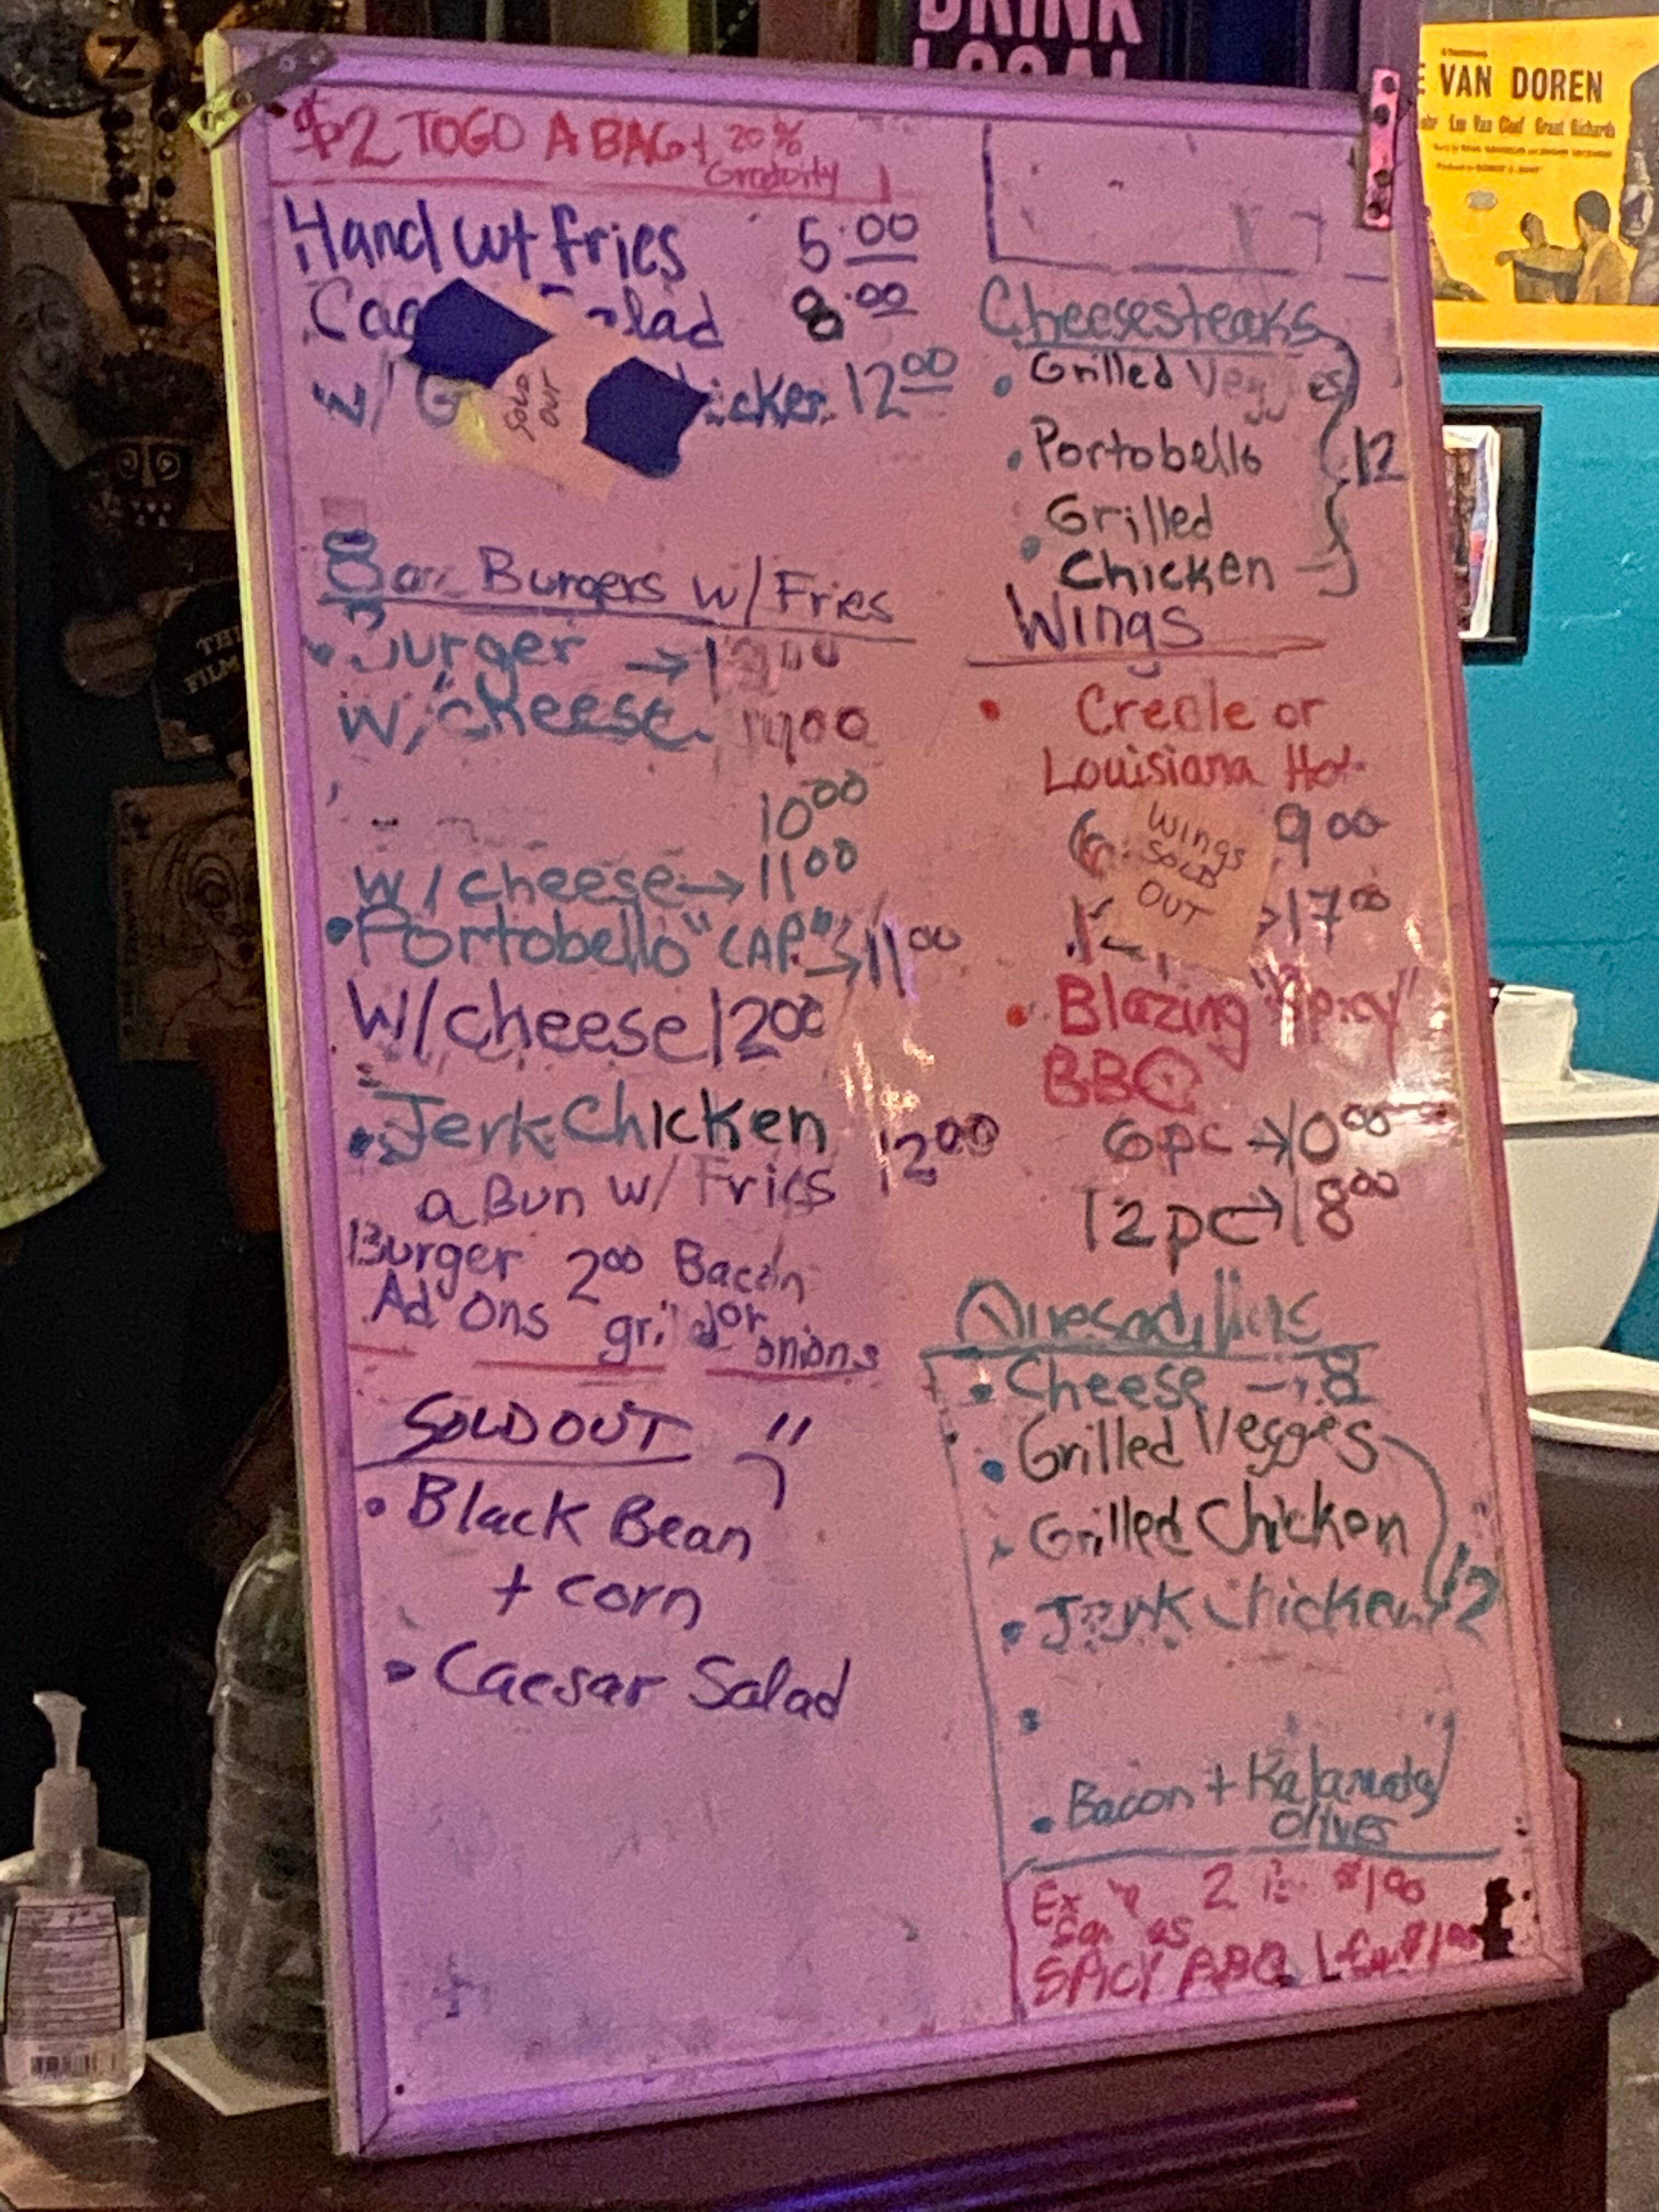 DRINK
LOCAL
VAN DOREN
$2 TOGO A BAG + 20%
Gratuity
Hand cut fries 5.00
Salad 8.00
w/ 12.00
SOLD
OUT
8oz Burgers w/ Fries
• Burger →
w/ cheese
10.00
w/ cheese → 11.00
• Portobello "CAP" → 11.00
w/ cheese 12.00
• Jerk Chicken 12.00
a Bun w/ Fries
Burger 2.00 Bacon
Ad Ons or
onions
SOLD OUT
• Black Bean
+ corn
• Caesar Salad
Cheesesteaks
• Grilled Veggies
• Portobello 12
• Grilled
Chicken
Wings
• Creole or
Louisiana Hot
9.00
17.00
Wings
SOLD
OUT
• Blazing "Spicy"
BBQ
6pc → 10.00
12pc → 18.00
Quesadillas
• Cheese → 8
• Grilled Vegges
• Grilled Chicken
• Jerk Chicken 12
• Bacon + Kalamata
olives
Ex 2 $1.00
SPICY BBQ